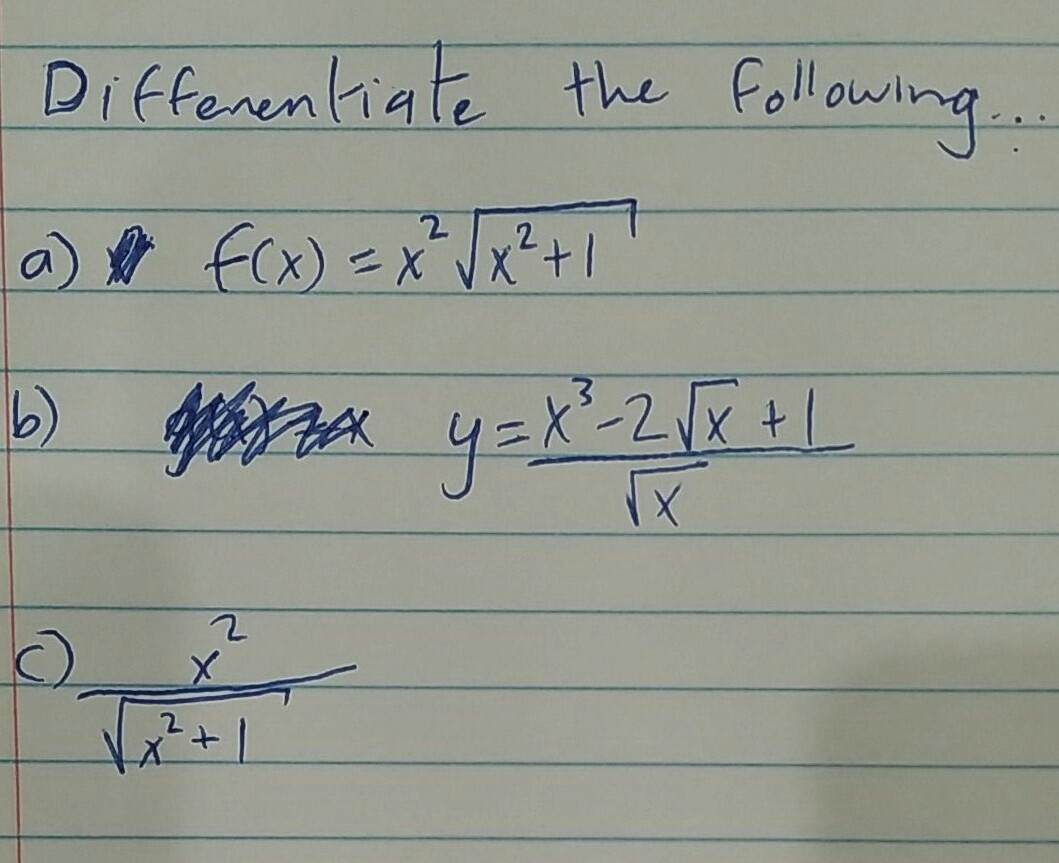 Differentiate the following...
a) f(x) = x²√(x²+1)
b) y = (x³-2√x+1)/√x
c) x²/√(x²+1)